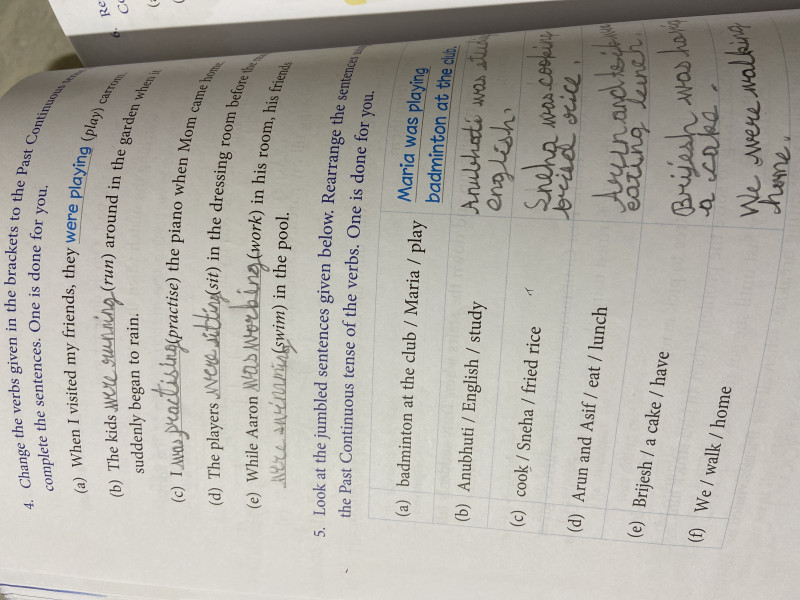 4. Change the verbs given in the brackets to the Past Continuous
complete the sentences. One is done for you.
(a) When I visited my friends, they were playing (play) carrom
(b) The kids were running (run) around in the garden when it
suddenly began to rain.
(c) I was practising (practise) the piano when Mom came home
(d) The players were sitting (sit) in the dressing room before the
(e) While Aaron was working (work) in his room, his friends
were (swim) in the pool.
5. Look at the jumbled sentences given below. Rearrange the sentences
the Past Continuous tense of the verbs. One is done for you.
(a) badminton at the club / Maria / play
Maria was playing
badminton at the club.
(b) Anubhuti / English / study
Anubhuti was
english.
(c) cook / Sneha / fried rice
Sneha was cooking
rice.
(d) Arun and Asif / eat / lunch
eating lunch.
(e) Brijesh / a cake / have
Brijesh was
a cake.
(f) We / walk / home
We were walking
home.
6. Re